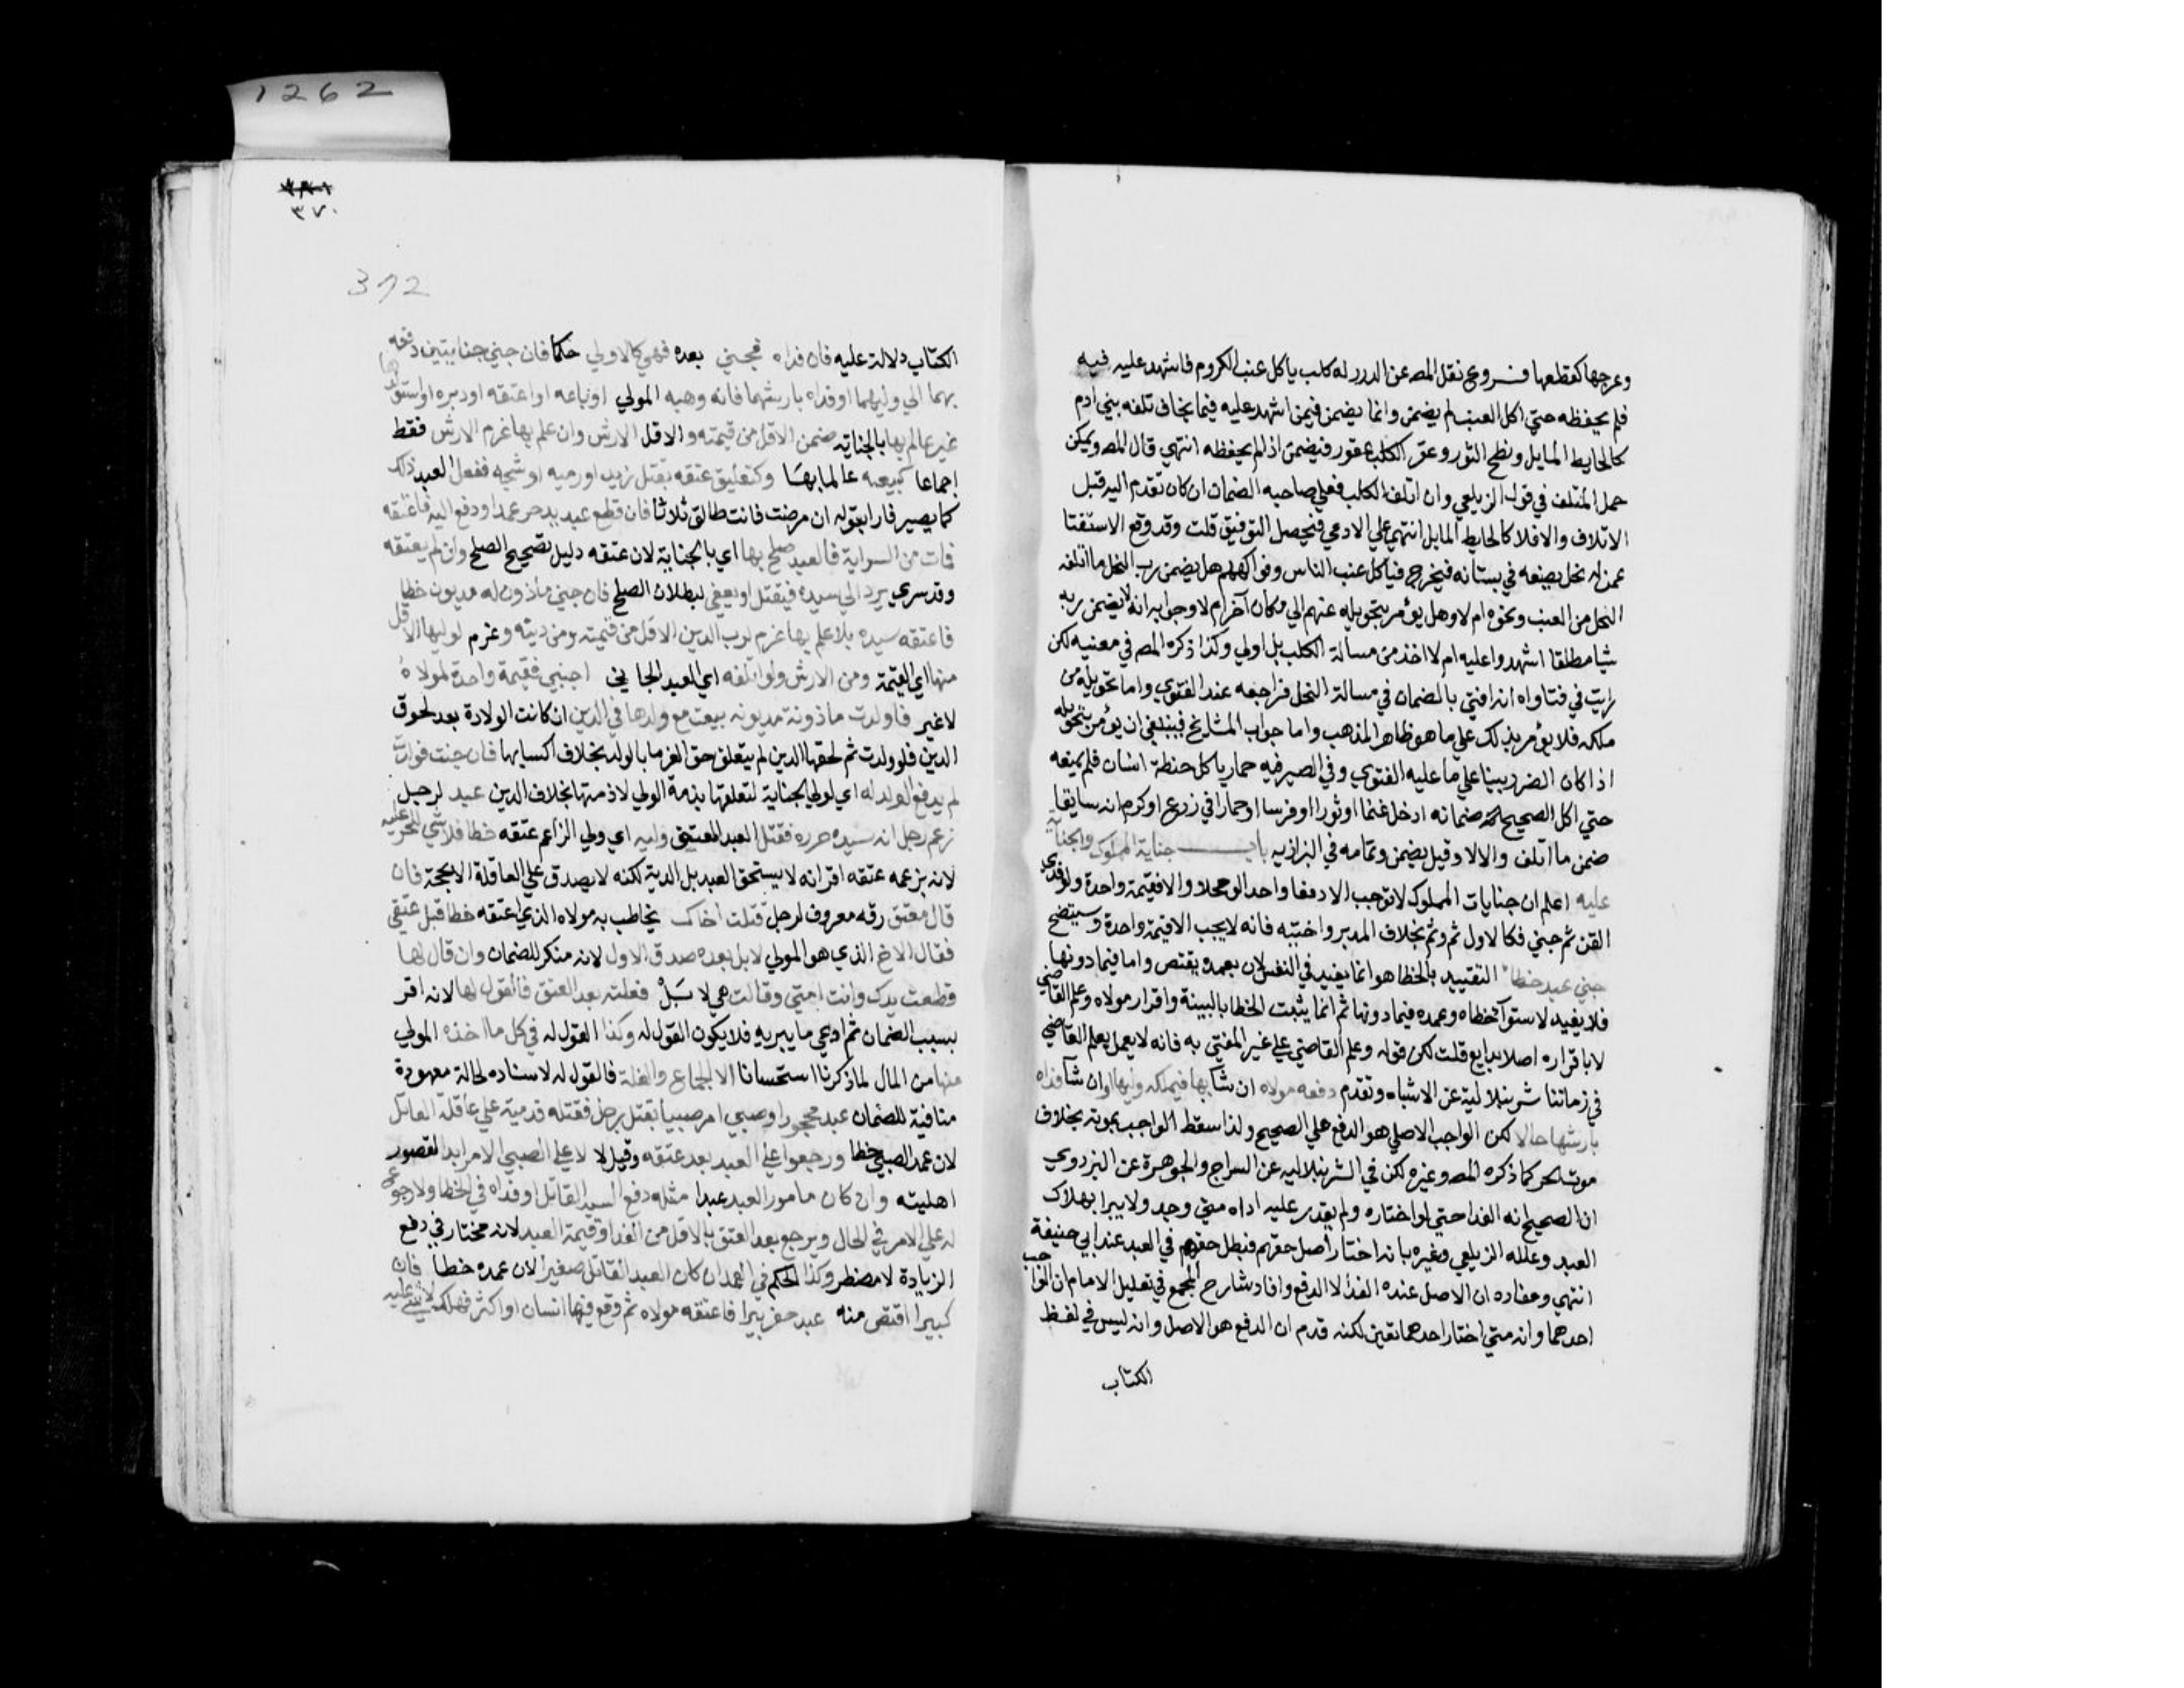 وعرجها كقطعها فـــروع نقل المص عن الدرر له كلب ياكل عنب الكروم فاشهد عليه فيه
فلم يحفظه حتي اكل العنب لم يضمن وانما يضمن فيمن اشهد عليه فيما يخاف تلفه بني ادم
كالحايط المايل ونطح الثور وعقر الكلب عقور فيضمن اذا لم يحفظه انتهي قال المص ويمكن
حمل المتلف في قول الزيلعي وان اتلف الكلب فعلي صاحبه الضمان ان كان تقدم اليه قبل
الاتلاف والافلا كالحايط المايل انتهي علي الادمي فيحصل التوفيق قلت وقد وقع الاستفتا
عمن له نحل يضعه في بستانه فيخرج فياكل عنب الناس وفواكههم هل يضمن رب النحل ما اتلفه
النحل من العنب ونحوه ام لا وهل يؤمر بتحويله عنهم الي مكان آخر ام لا وجوابه انه لا يضمن ربه
شيا مطلقا اشهدوا عليه ام لا اخذ من مسالة الكلب بل اولي وكذا ذكره المص في معنيه لكن
رايت في فتاواه انه افتي بالضمان في مسالة النحل فراجعه عند الفتوي واما تحويله من
ملكه فلا يؤمر بذلك علي ما هو ظاهر المذهب واما جواب المشايخ فينبغي ان يؤمر بتحويله
اذا كان الضرر بينا علي ما عليه الفتوي وفي الصيرفيه حمار ياكل حنطة انسان فلم يمنعه
حتي اكل الصحيح ضمانه ادخل غنما او ثورا او فرسا او حمارا في زرع او كرم ان سايقا
ضمن ما اتلف والا لا وقيل يضمن وتمامه في البزازيه بابـــــ جناية المملوك والجناية
عليه اعلم ان جنايات المملوك لا توجب الا دفعا واحدا لو محلا والا فقيمة واحدة ولو فدي
القن ثم جني فكالاول ثم وثم بخلاف المدبر واختيه فانه لا يجب الا قيمة واحدة وسيتضح
جني عبد خطا التقييد بالخطا هو انما يفيد في النفس لان بعمده يقتص واما فيما دونها
فلا يفيد لاستوآ خطاه وعمده فيما دونها ثم انما يثبت الخطا بالبينة واقرار مولاه وعلم القاضي
لا باقراره اصلا بدايع قلت لكن قوله وعلم القاضي علي غير المفتي به فانه لا يعمل بعلم القاضي
في زماننا شرنبلالية عن الاشباه وتقدم دفعه مولاه ان شا بها فيملكه وليها وان شا فداه
بارشها حالا لكن الواجب الاصلي هو الدفع علي الصحيح ولذا سقط الواجب بموته بخلاف
موت الحر كما ذكره المص وغيره لكن في الشرنبلاليه عن السراج والجوهرة عن البزدوي
ان الصحيح انه الفدا حتي لو اختاره ولم يقدر عليه اداه متي وجد ولا يبرا بهلاك
العبد وعلله الزيلعي وغيره بانه اختار اصل حقهم فبطل حقهم في العبد عند ابي حنيفة
انتهي ومفاده ان الاصل عنده الفدا لا الدفع وافاد شارح المجمع في تعليل الامام ان الواجب
احدهما وانه متي اختار احدهما تعين لكنه قدم ان الدفع هو الاصل وانه ليس في لفظ
الكتاب
1262
٣٧٠
372
الكتاب دلالة عليه فان فداه فجني بعده فهي كالاولي حكما فان جني جنايتين دفعه
بهما الي وليهما او فداه بارشهما فانه وهبه المولي او باعه او اعتقه او دبره او استولدها
غير عالم بها بالجناية ضمن الاقل من قيمته والاقل الارش وان علم بها غرم الارش فقط
اجماعا كبيعه عالما بها وكتعليق عتقه بقتل زيد او رميه او شجه ففعل العبد ذلك
كما يصير فارا بقوله ان مرضت فانت طالق ثلاثا فان قطع عبد يد حر عمدا ودفع اليه فاعتقه
فمات من السراية فالعبد صلح بها اي بالجناية لان عتقه دليل تصحيح الصلح وان لم يعتقه
وقد سري يرد الي سيده فيقتل او يعفي لبطلان الصلح فان جني مأذون له مديون خطا
فاعتقه سيده بلا علم بها غرم لرب الدين الاقل من قيمته ومن دينه وغرم لوليها الاقل
منها اي القيمة ومن الارش ولو اتلفه اي العبد الجاني اجنبي فقيمة واحدة لمولاه
لا غير فاولدت ماذونة مديونه بيعت مع ولدها في الدين ان كانت الولادة بعد لحوق
الدين فلو ولدت ثم لحقها الدين لم يتعلق حق الغرما بالولد بخلاف اكسابها فان جنت فولدت
لم يدفع الولد له اي لولي الجناية لتعلقها بذمة الولي لا ذمتها بخلاف الدين عبد لرجل
زعم رجل انه سيده حرره فقتل العبد المعتق وليه اي ولي الزاعم عتقه خطا فلا شي للحر عليه
لانه بزعمه عتقه اقر انه لا يستحق العبد بل الدية لكنه لا يصدق علي العاقلة الا بحجة فان
قال معتق رقه معروف لرجل قتلت اخاك يخاطب به مولاه الذي اعتقه خطا قبل عتقي
فقال الاخ الذي هو المولي لا بل بعده صدق الاول لانه منكر للضمان وان قال لها
قطعت يدك وانت امتي وقالت هي لا بَلْ فعلته بعد العتق فالقول لها لانه اقر
بسبب الضمان ثم ادعي ما يبريه فلا يكون القول له وكذا القول له في كل ما اخذه المولي
منها من المال لما ذكرنا استحسانا الا الجماع والغلة فالقول له لاسناده لحالة معهودة
منافية للضمان عبد محجور او صبي امر صبيا بقتل رجل فقتله فديته علي عاقلة القاتل
لان عمد الصبي خطا ورجعوا علي العبد بعد عتقه وقيل لا لا علي الصبي الامر ابدا لقصور
اهليته وان كان مامور العبد عبدا مثله دفع السيد القاتل او فداه في الخطا ولا رجوع
له علي الامر في الحال ويرجع بعد العتق بالاقل من الفدا وقيمة العبد لانه مختار في دفع
الزيادة لا مضطر وكذا الحكم في العمد ان كان العبد القاتل صغيرا لان عمده خطا فان
كبيرا اقتص منه عبد حفر بيرا فاعتقه مولاه ثم وقع فيها انسان او اكثر فهلك لا شي عليه